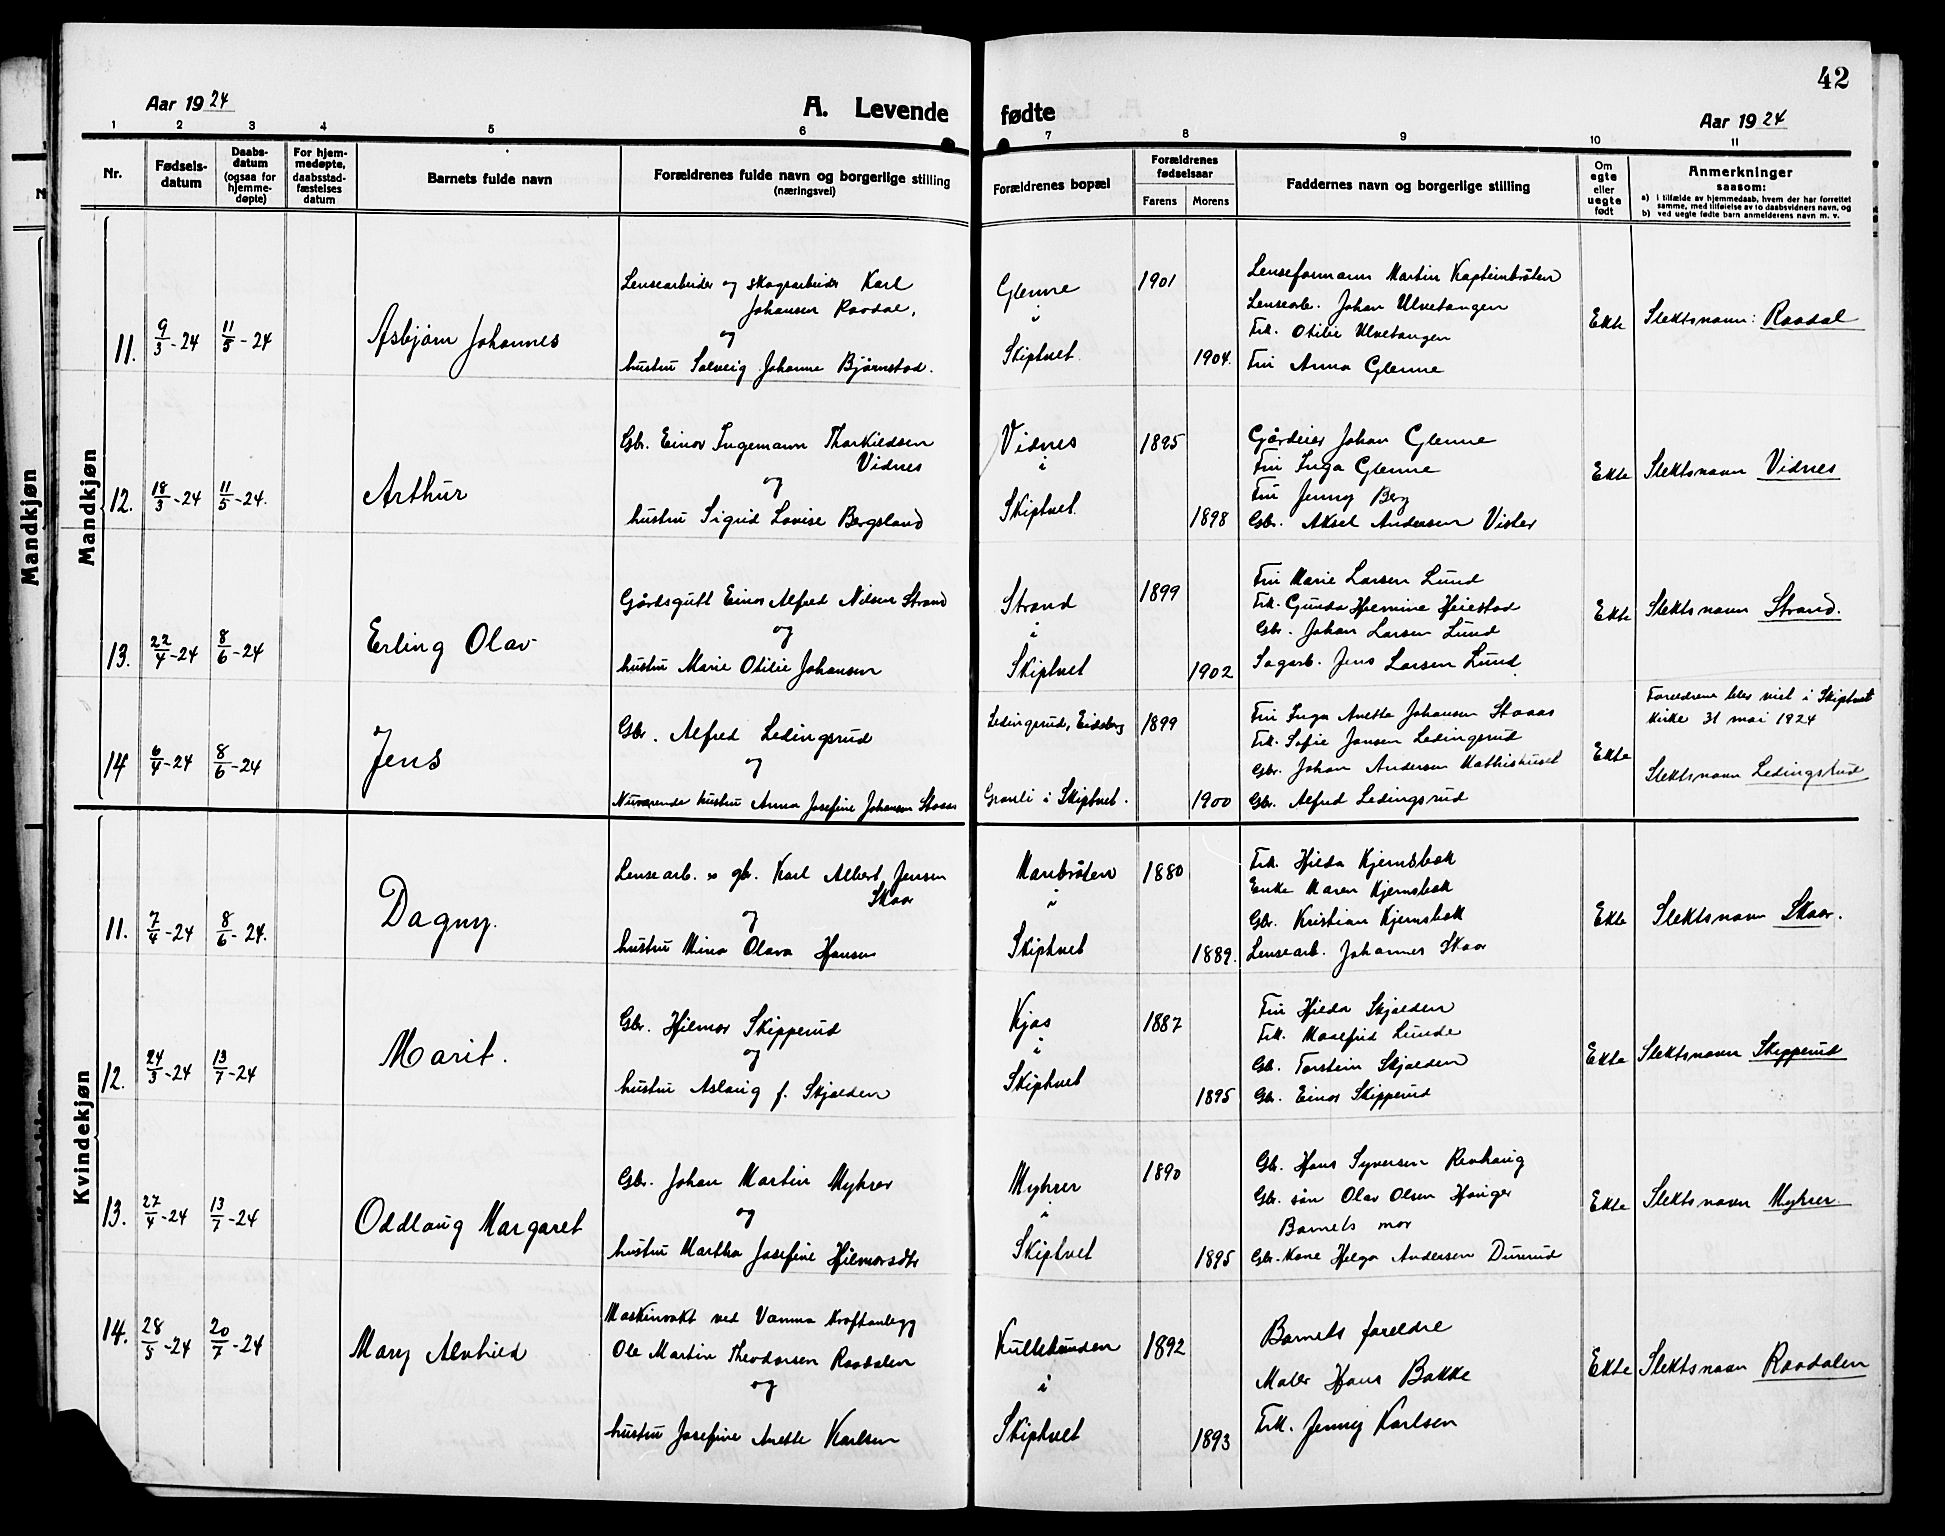 42
Aar 1924
A. Levende fødte
Aar 1924
1 2 3 4 5 6 7 8 9 10 11
Nr.
Fødsels-
datum
Daabs-
datum
(ogsaa for
hjemme-
døpte)
For hjem-
medøpte,
daabsstad-
fæstelses
datum
Barnets fulde navn
Forældrenes fulde navn og borgerlige stilling
(næringsvei)
Forældrenes bopæl
Forældrenes
fødselsaar
Farens Morens
Faddernes navn og borgerlige stilling
Om
egte
eller
uegte
født
Anmerkninger
saasom:
a) i tilfælde av hjemmedaab, hvem der har forrettet
samme, med tilføielse av to daabsvidners navn, og
b) ved uegte fødte barn anmelderens navn m. v.
Mandkjøn
Mandkjøn
11. 9/3-24 11/5-24
Asbjørn Johannes
Lensearbeider og skogsarbeider Karl
Johansen Raadal,
og
hustru Solveig Johanne Bjørnstad.
Glenne
i
Skiptvet.
1901
1904.
Lenseformann Martin Kapteinbråten
Lensearb. Johan Ulvetangen
Frk. Otilie Ulvetangen
Fru Anna Glenne
Ekte
Slektsnavn: Raadal
12. 18/3-24 11/5-24.
Arthur
Gbr. Einar Ingemann Thorkildsen
Vidnes
og
hustru Sigrid Lovise Bergsland
Vidnes
i
Skiptvet.
1895
1898
Gårdeier Johan Glenne
Fru Inga Glenne
Fru Jenny Berg
Gbr. Aksel Andersen Vister
Ekte
Slektsnavn Vidnes
13. 22/4-24 8/6-24
Erling Olav
Gårdsgutt Einar Alfred Nilsen Strand
og
hustru Marie Otilie Johansen
Strand
i
Skiptvet
1899
1902
Fru Marie Larsen Lund
Frk. Gunda Hermine Heiestad
Gbr. Johan Larsen Lund
Sagarb. Jens Larsen Lund
Ekte
Slektsnavn Strand.
14 6/4-24 8/6-24
Jens
Gbr. Alfred Ledingsrud
og
Nuværende hustru Anna Josefine Johansen Staaas
Ledingsrud, Eidsberg
Granli i Skiptvet.
1899
1900
Fru Inga Anette Johansen Staaas
Frk. Sofie Jansen Ledingsrud
Gbr. Johan Andersen Mathishuset
Gbr. Alfred Ledingsrud
Ekte
Foreldrene blev viet i Skiptvet
kirke 31 mai 1924
Slektsnavn Ledingsrud
Kvindekjøn
11. 7/4-24 8/6-24.
Dagny.
Lensearb. og gbr. Karl Albert Jensen
Skaar
og
hustru Mina Olava Hansen
Maribråten
i
Skiptvet
1880
1889.
Frk. Hilda Kjernsbæk
Enke Maren Kjernsbæk
Gbr. Kristian Kjernsbæk
Lensearb. Johannes Skaar
Ekte
Slektsnavn Skaar.
12. 24/3-24 13/7-24
Marit.
Gbr. Hilmar Skipperud
og
hustru Aslaug f. Skjolden
Kjos
i
Skiptvet
1887
1895
Fru Hilda Skjolden
Frk. Masefrid Lunde
Gbr. Torstein Skjolden
Gbr. Einar Skipperud
Ekte
Slektsnavn Skipperud
13. 27/4-24 13/7-24
Oddlaug Margaret
Gbr. Johan Martin Myhrer
og
hustru Martha Josefine Hilmarsdtr
Myhrer
i
Skiptvet
1890
1895
Gbr. Hans Syversen Revhaug
Gbr. søn Olav Olsen Hauger
Barnets mor
Gbr. kone Helga Andersen Durerud
Ekte
Slektsnavn Myhrer.
14. 28/5-24 20/7-24
Mary Alvhild
Maskinvakt ved Vamma kraftanlegg
Ole Martin Theodorsen Raadalen
og
hustru Josefine Anette Karlsen
Kullebunden
i
Skiptvet
1892
1893
Barnets foreldre
Maler Hans Bakke
Frk. Jenny Karlsen
Ekte
Slektsnavn Raadalen